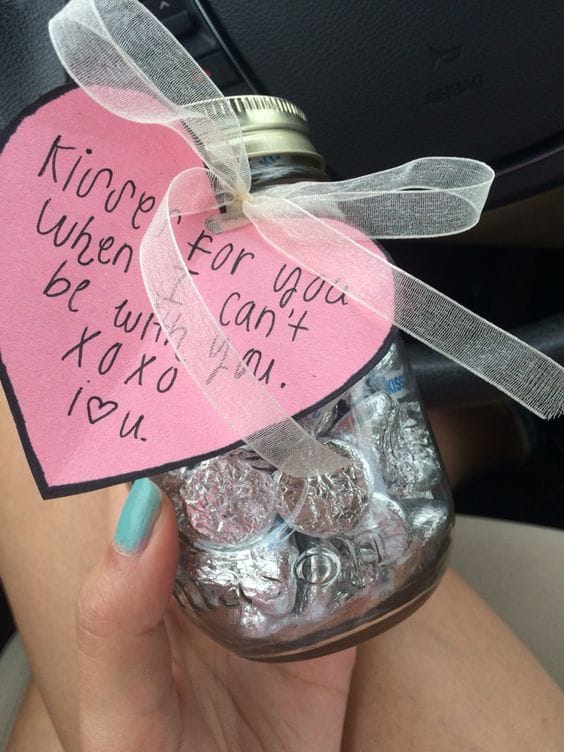 AIRBAG
Kisses for you
when I can't
be with you.
xoxo
i♡u.
KISS